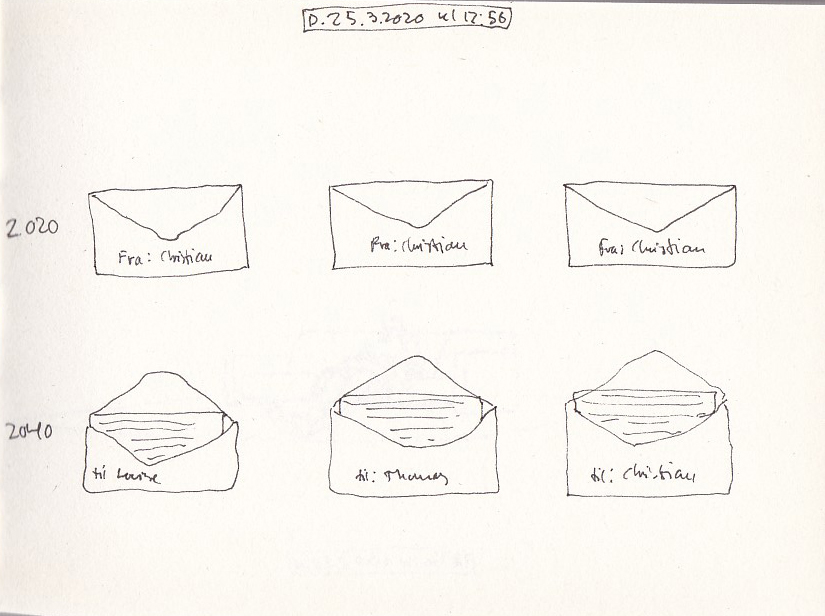 D. 25.3.2020 kl 12:56
2020
Fra: Christian
Fra: Christian
Fra: Christian
2040
til Louise
til: Thomas
til: Christian